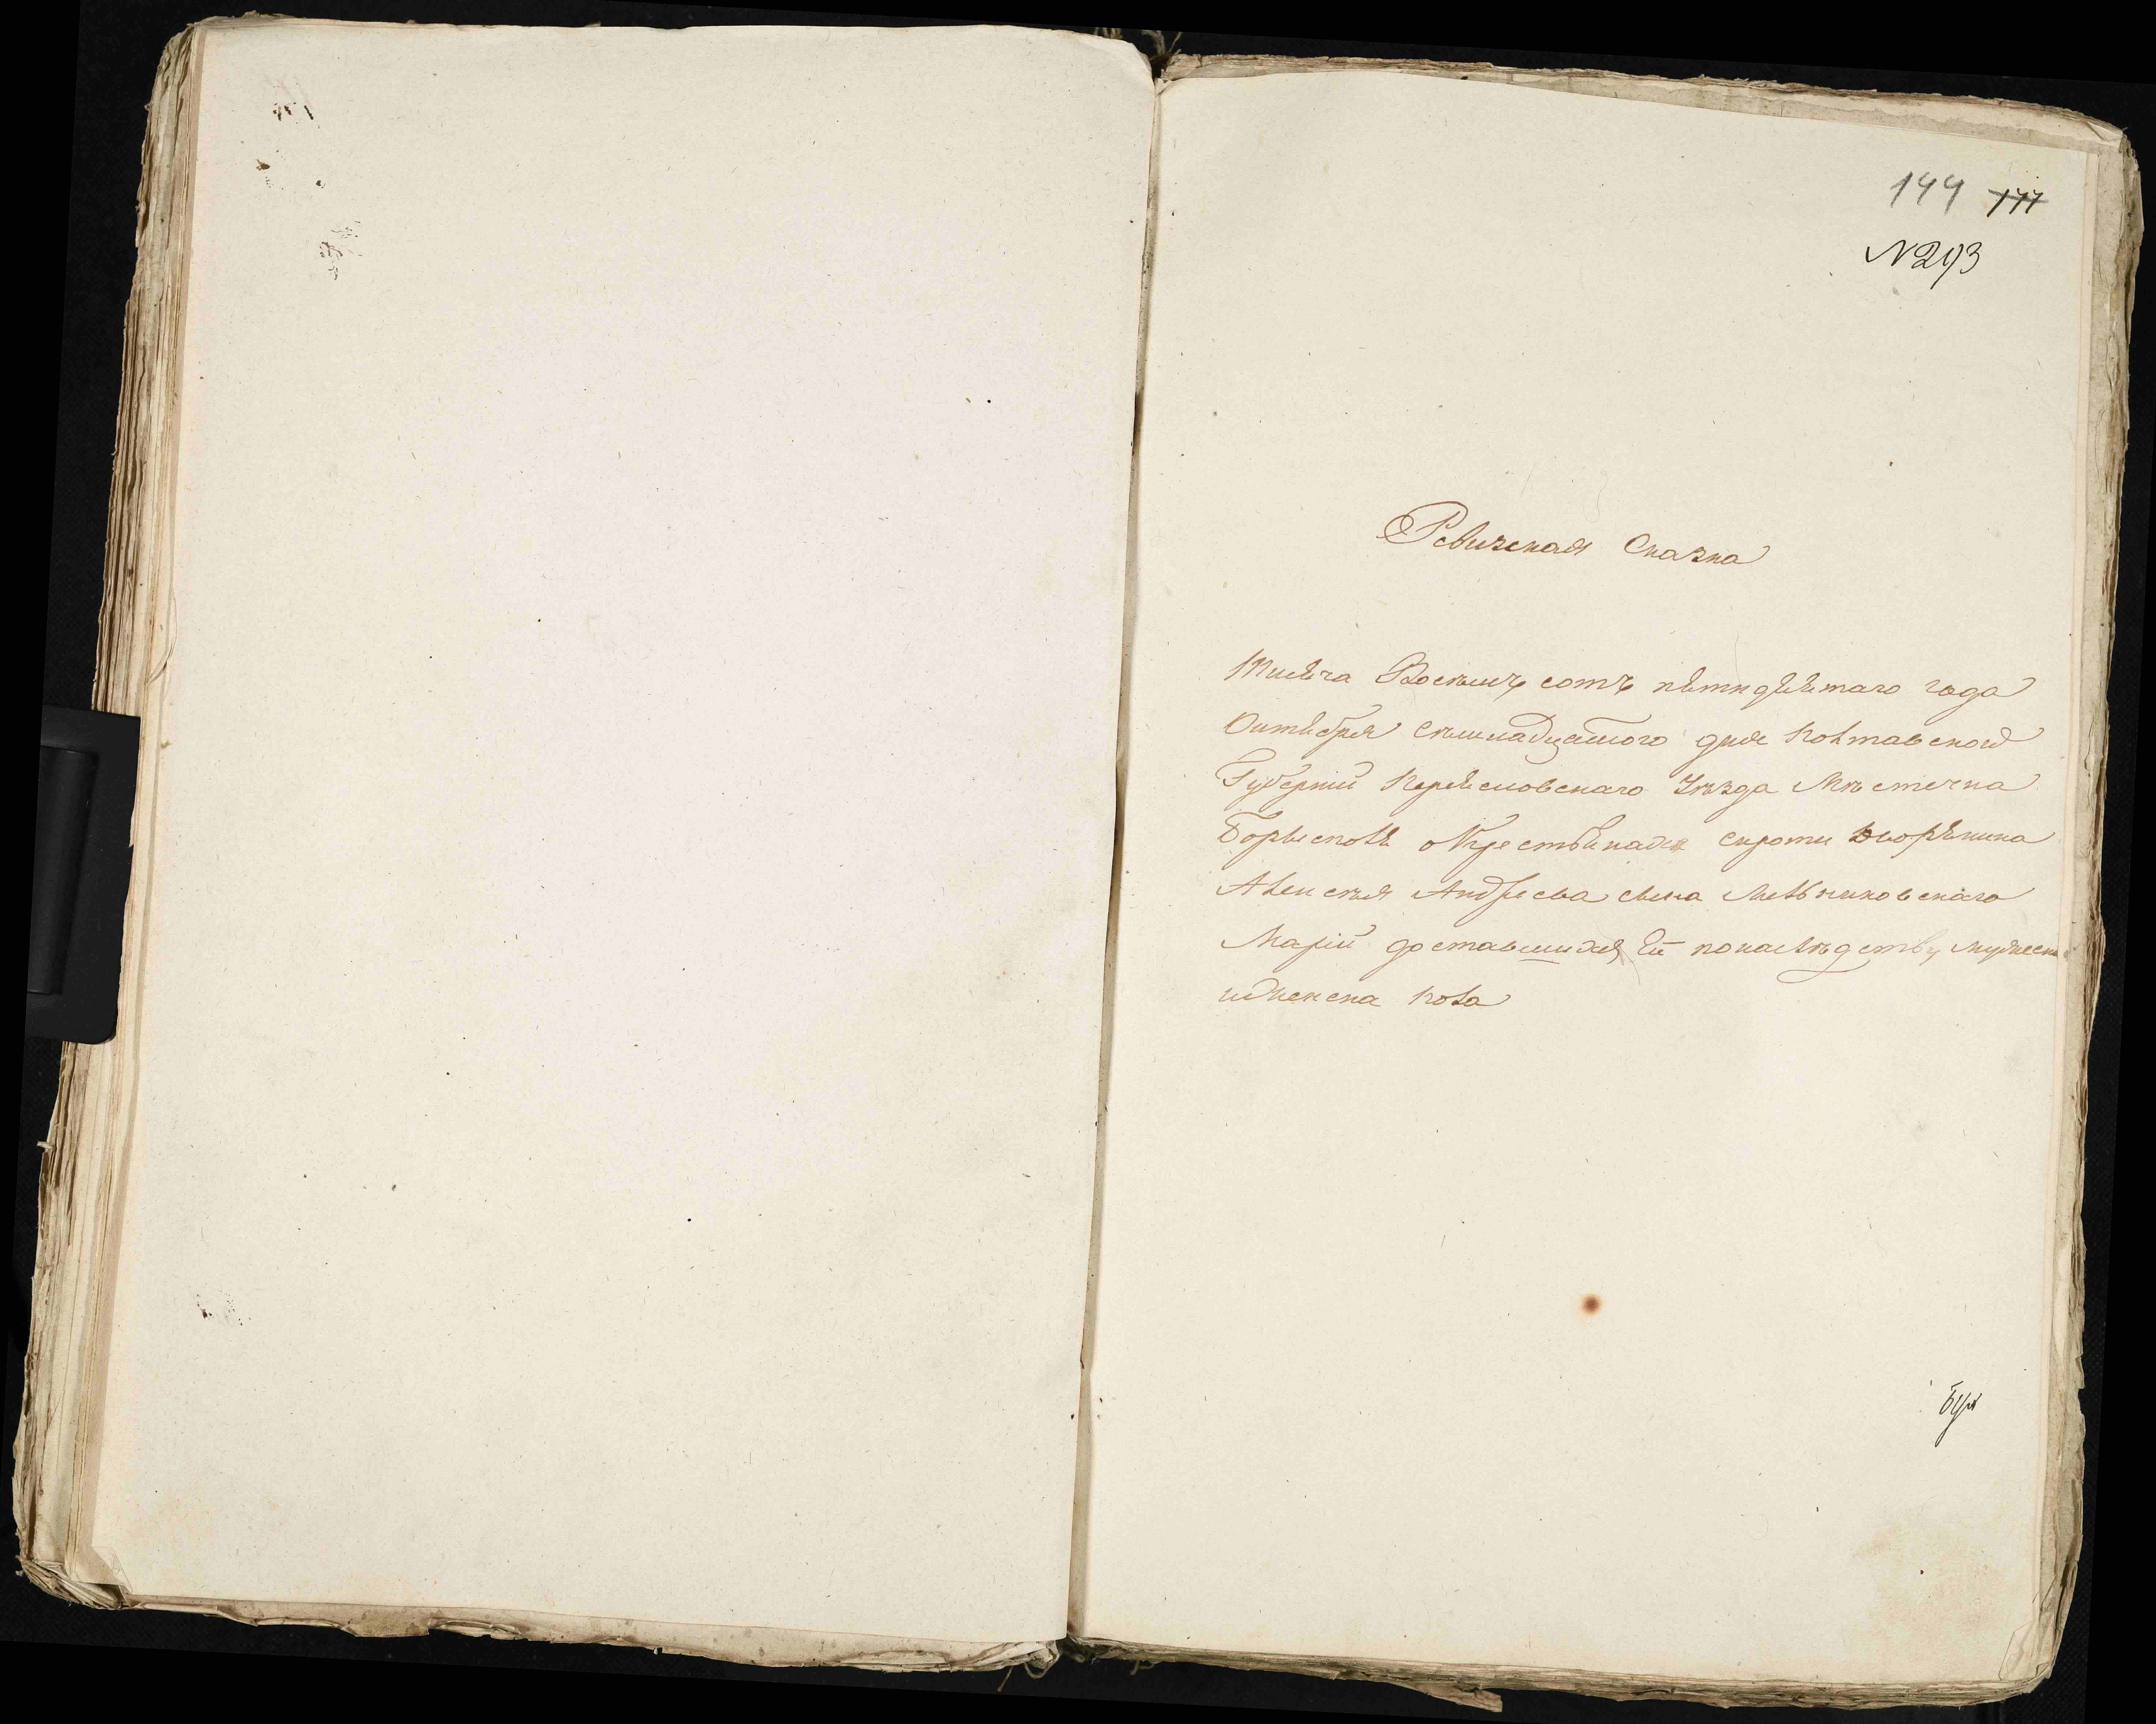 144 177
N293
Ревизская Сказка
Тысяча Восемъ сотъ пятидесятаго года
Октября семнадцатого дня Полтавской
Губерніи Переясловскаго Уѣзда Мѣстечка
Борысполя о Крестьянахъ сироты дворянина
Алексея Андреева сына Мельниковскаго
Маріи доставшихся Ей по наслѣдству мужеска
и женска пола